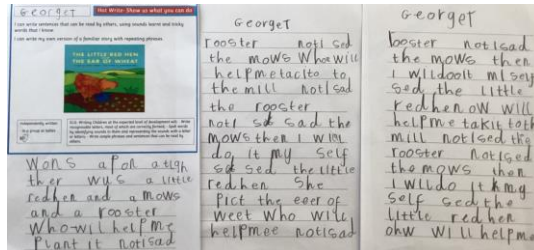 Georget
Hot Write: Show us what you can do
I can write sentences that can be read by others, using sounds learnt and tricky
words that I know
I can write my own version of a familiar story with repeating phrases.
THE LITTLE RED HEN
THE EAR OF WHEAT
Independently written
in a group or table
Wons apon a tigh
ther wus a little
redhen and a mows
and a rooster
Who wil help me
Plant it notisad
Georget
rooster noti sed
the mows Whowill
helpmetacito to
the mill notisad
the rooster
noti sad the
mows then I will
do it my self
sed the little
redhen She
Pict the eeer of
weet Who will
helpmee notisad
Georget
rooster notisad
the mows then
I willdooit miself
sed the little
redhen ow will
helpme takit toth
mill notised the
rooster notised
the mows then
I will do it my
self sed the
little red hen
ohw will helpme